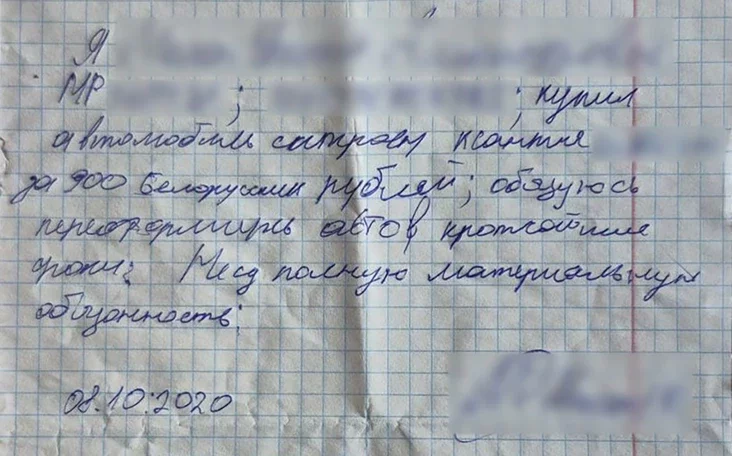 Я
МР ; ; купил
автомобиль ситроен ксантия
за 900 белоруских рублей; обязуюсь
переоформить авто в кротчайшие
сроки; Несу полную материальную
обязанность;
08.10.2020